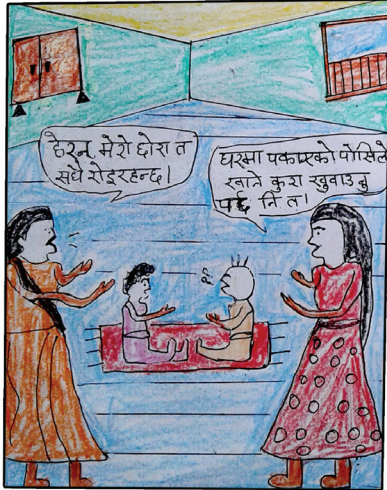 हेरन मेरो छोरा त
सधै रोइरहन्छ।
घरमा पकाएको पोसिलो
खाने कुरा खुवाउनु
पर्छ नि त।